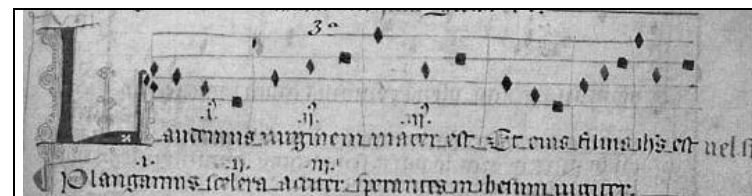 3ª
.i. .ij. .iij.
Laudemus uirginem mater est Et eius filius ihs est uel
.i. ij. iij.
Plangamus scelera acriter sperantes in ihesum